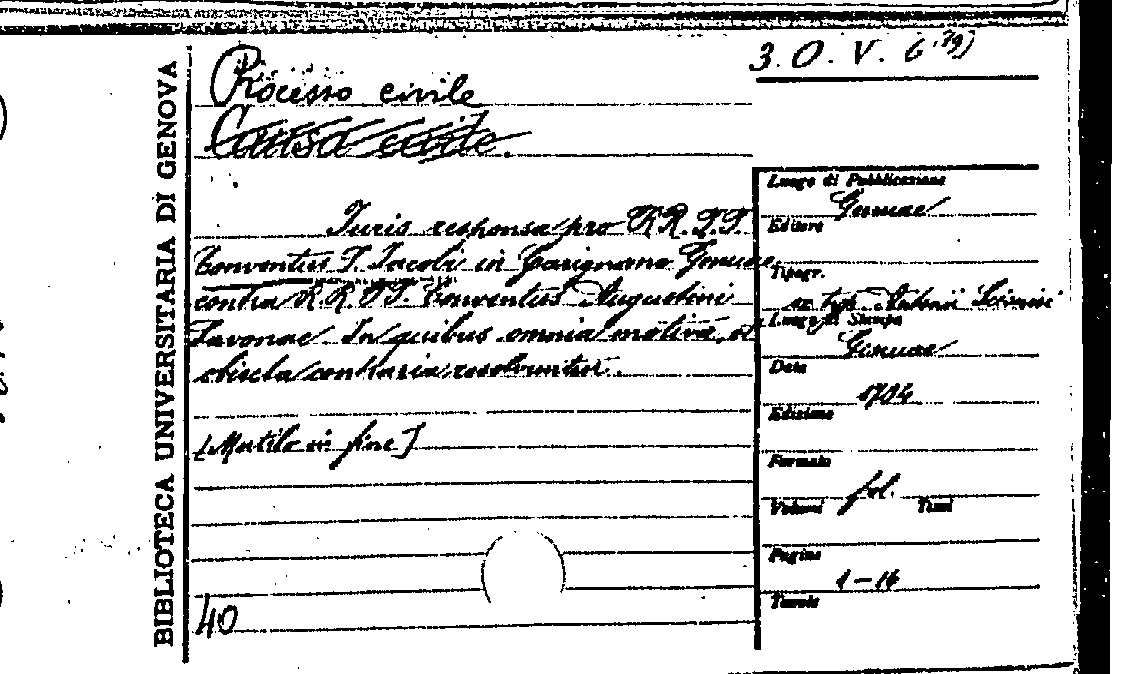 BIBLIOTECA UNIVERSITARIA DI GENOVA
3. O. V. 6 (19)
Processo civile
Causa civile.
Juris responsa pro RR. P.P.
Conventus S. Jacobi in Carignano Genuae
contra R.R. P.P. Conventus Augustini
Savonae In quibus omnia motiva, et
obiecta contraria resolvuntur.
[Mutilo in fine]
40
Luogo di Pubblicazione
Genuae
Editore
Tipogr.
ex typ. Antonii
Luogo di Stampa
Genuae
Data
1704
Edizione
Formato
fol.
Volumi Tomi
Pagine
1-14
Tavole